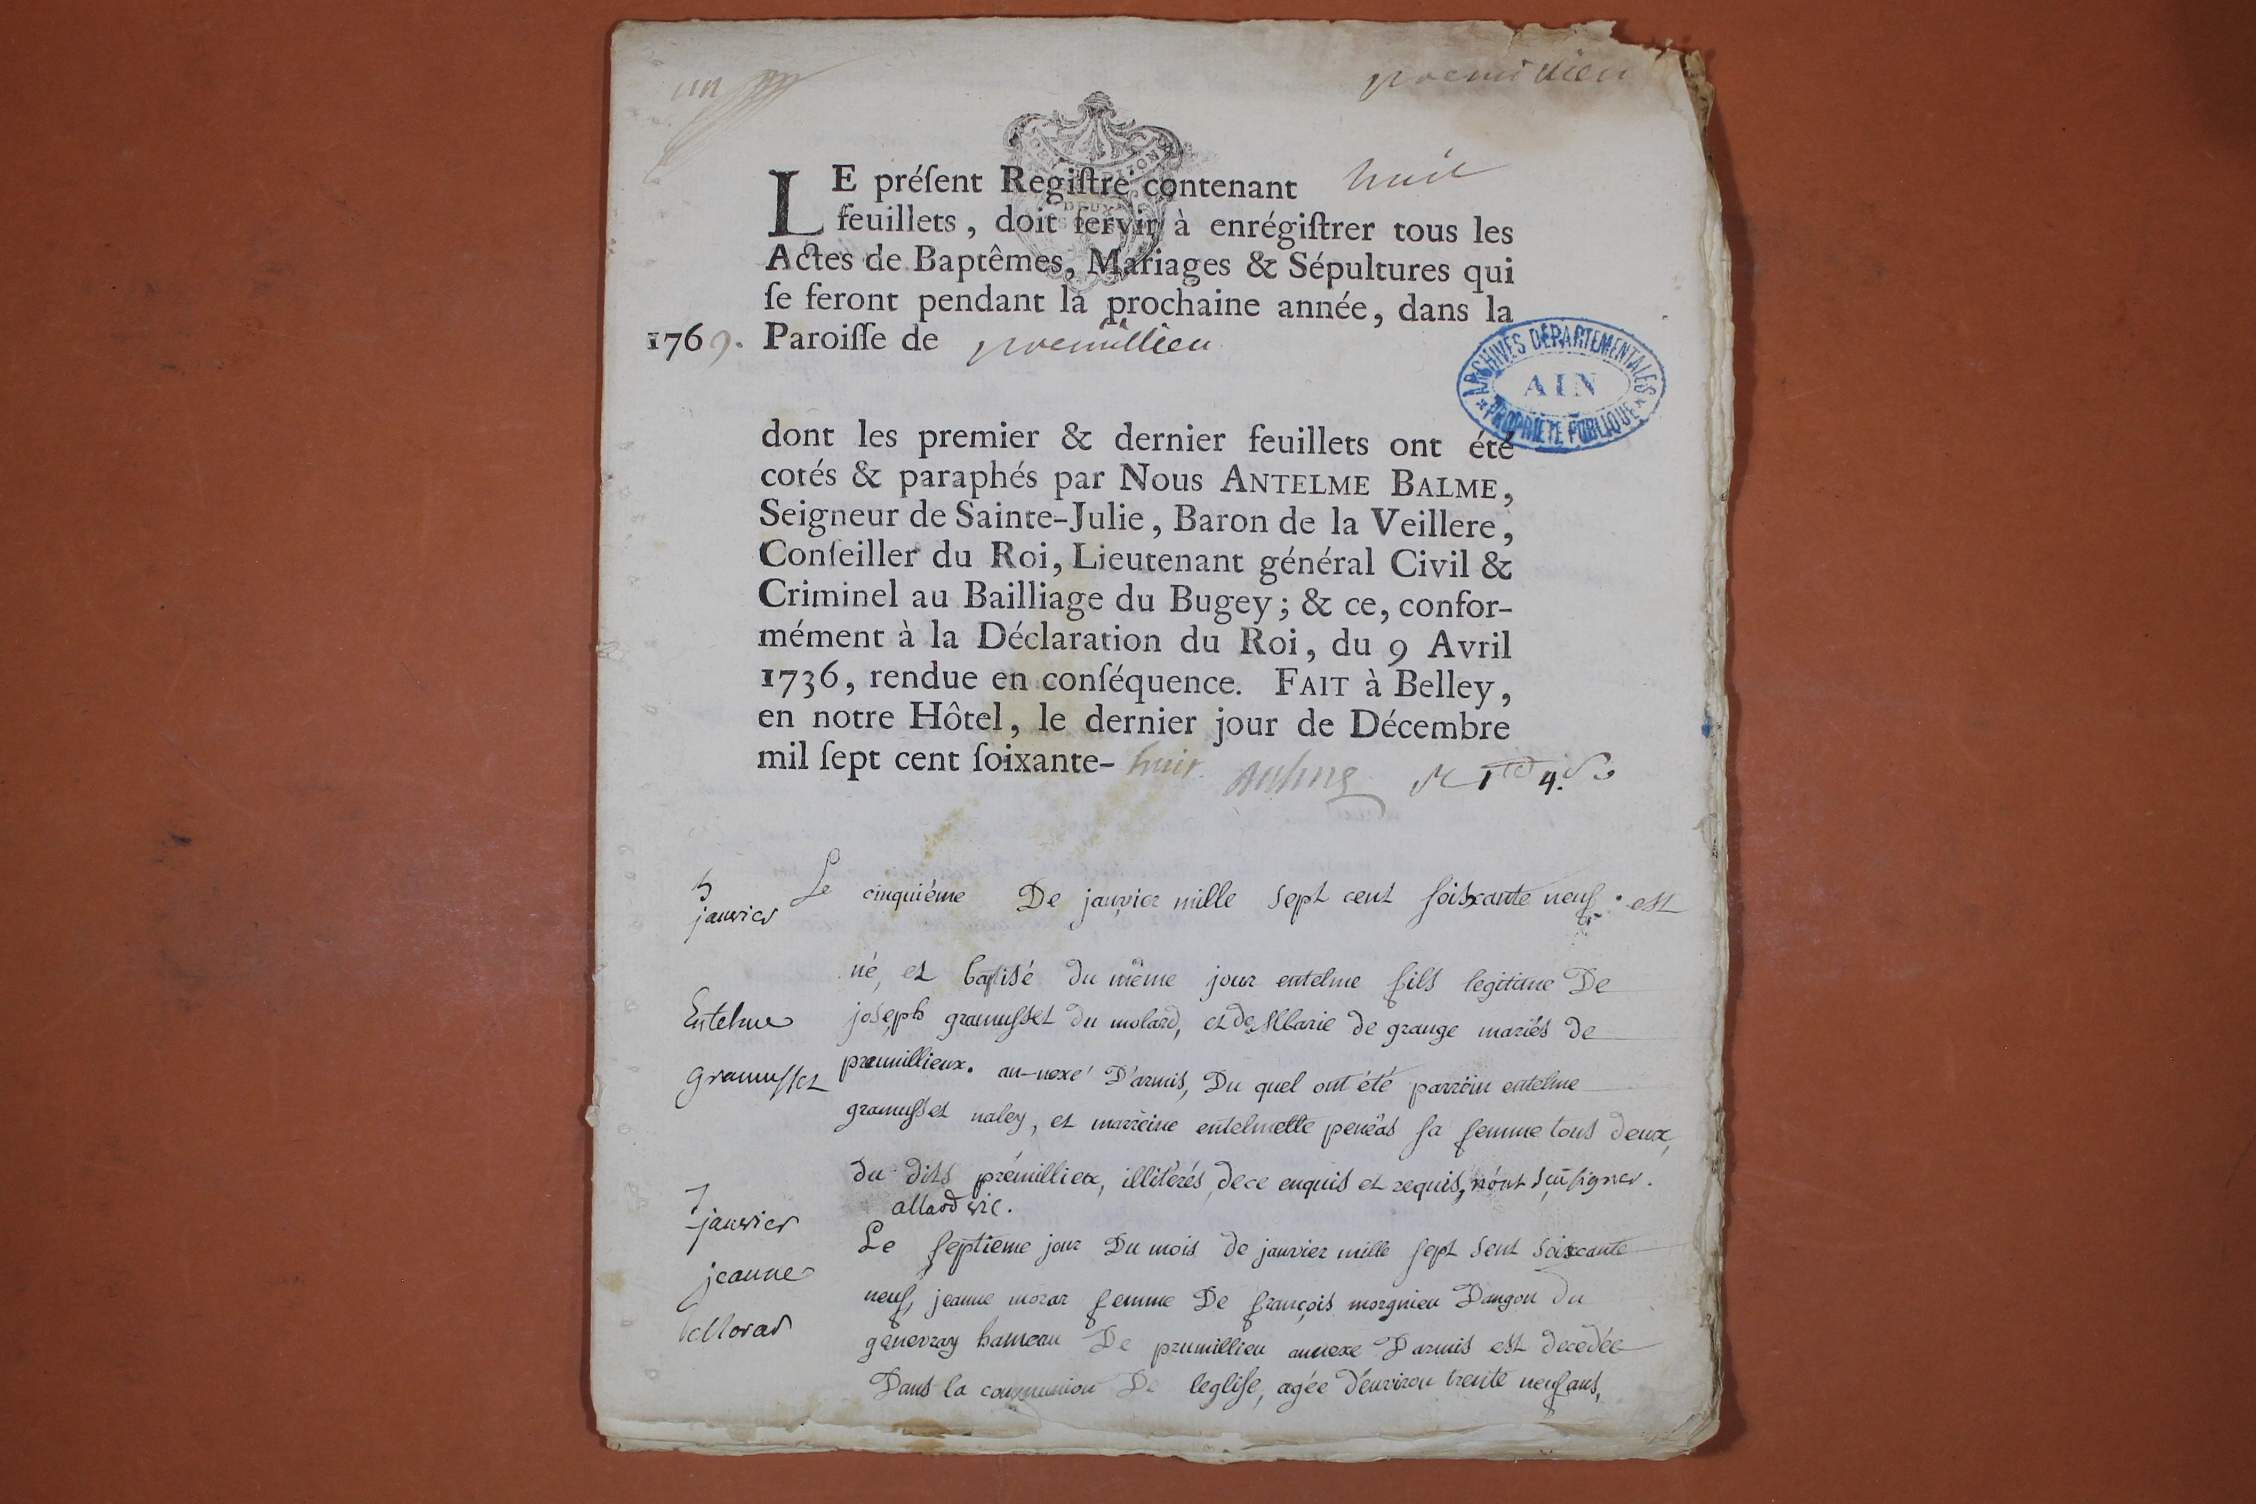 un
proemilieu
LE préſent Regiſtre contenant huit
feuillets, doit ſervir à enrégiſtrer tous les
Actes de Baptêmes, Mariages & Sépultures qui
ſe feront pendant la prochaine année, dans la
1769. Paroiſſe de proemillieu
ARCHIVES DÉPARTEMENTALES
AIN
PROPRIÉTÉ PUBLIQUE
dont les premier & dernier feuillets ont été
cotés & paraphés par Nous ANTELME BALME,
Seigneur de Sainte-Julie, Baron de la Veillere,
Conſeiller du Roi, Lieutenant général Civil &
Criminel au Bailliage du Bugey; & ce, confor-
mément à la Déclaration du Roi, du 9 Avril
1736, rendue en conſéquence. FAIT à Belley,
en notre Hôtel, le dernier jour de Décembre
mil ſept cent ſoixante-huit
5
janvier
Le cinquiéme De janvier mille sept cent soixante neuf. est
né, et batisé du même jour entelme fils legitime De
Entelme
joseph gramusset du molard, et de Marie de grange mariés de
gramusset
premillieux. an-nexe D'armis, Du quel ont été parrein entelme
gramusset naley, et marreine entelmette penëas sa femme tous deux,
du dits prémillieux, illiterés, de ce enquis et requis, n'ont sçu signer.
allard vic.
7
janvier
jeanne
Morar
Le septieme jour Du mois de janvier mille sept sent soixcante
neuf, jeanne morar femme De françois morgnieu Dangon du
genevray hameau De prumillieu annexe D'armis est decedée
Dans la communion De leglise, agée d'environ trente neuf ans,